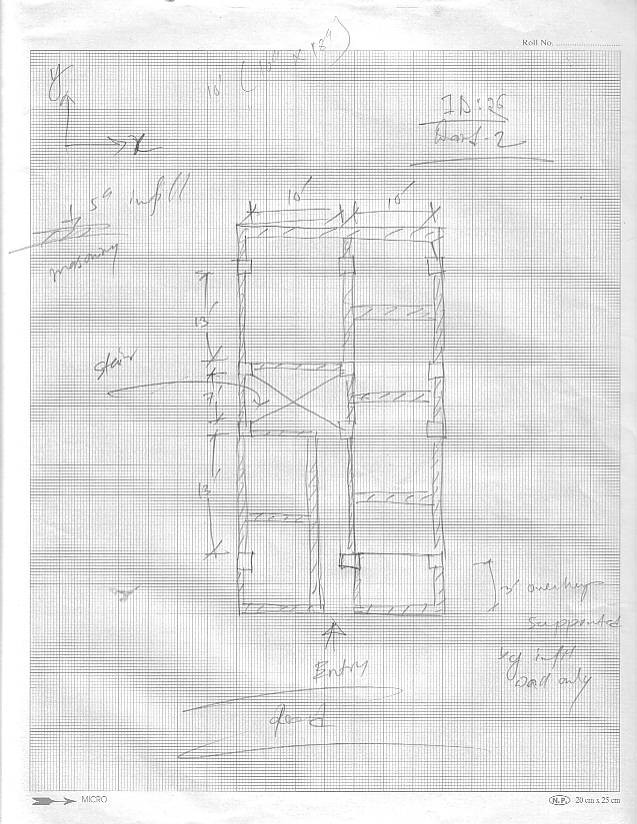 Roll No.
10' (10" x 18")
y
x
ID:26
Ward-2
5" infill
masonry
10' 10'
13'
stair
7'
13'
3' overhang
supported
by infill
wall only
Entry
Road
MICRO
N.P. 20 cm x 25 cm